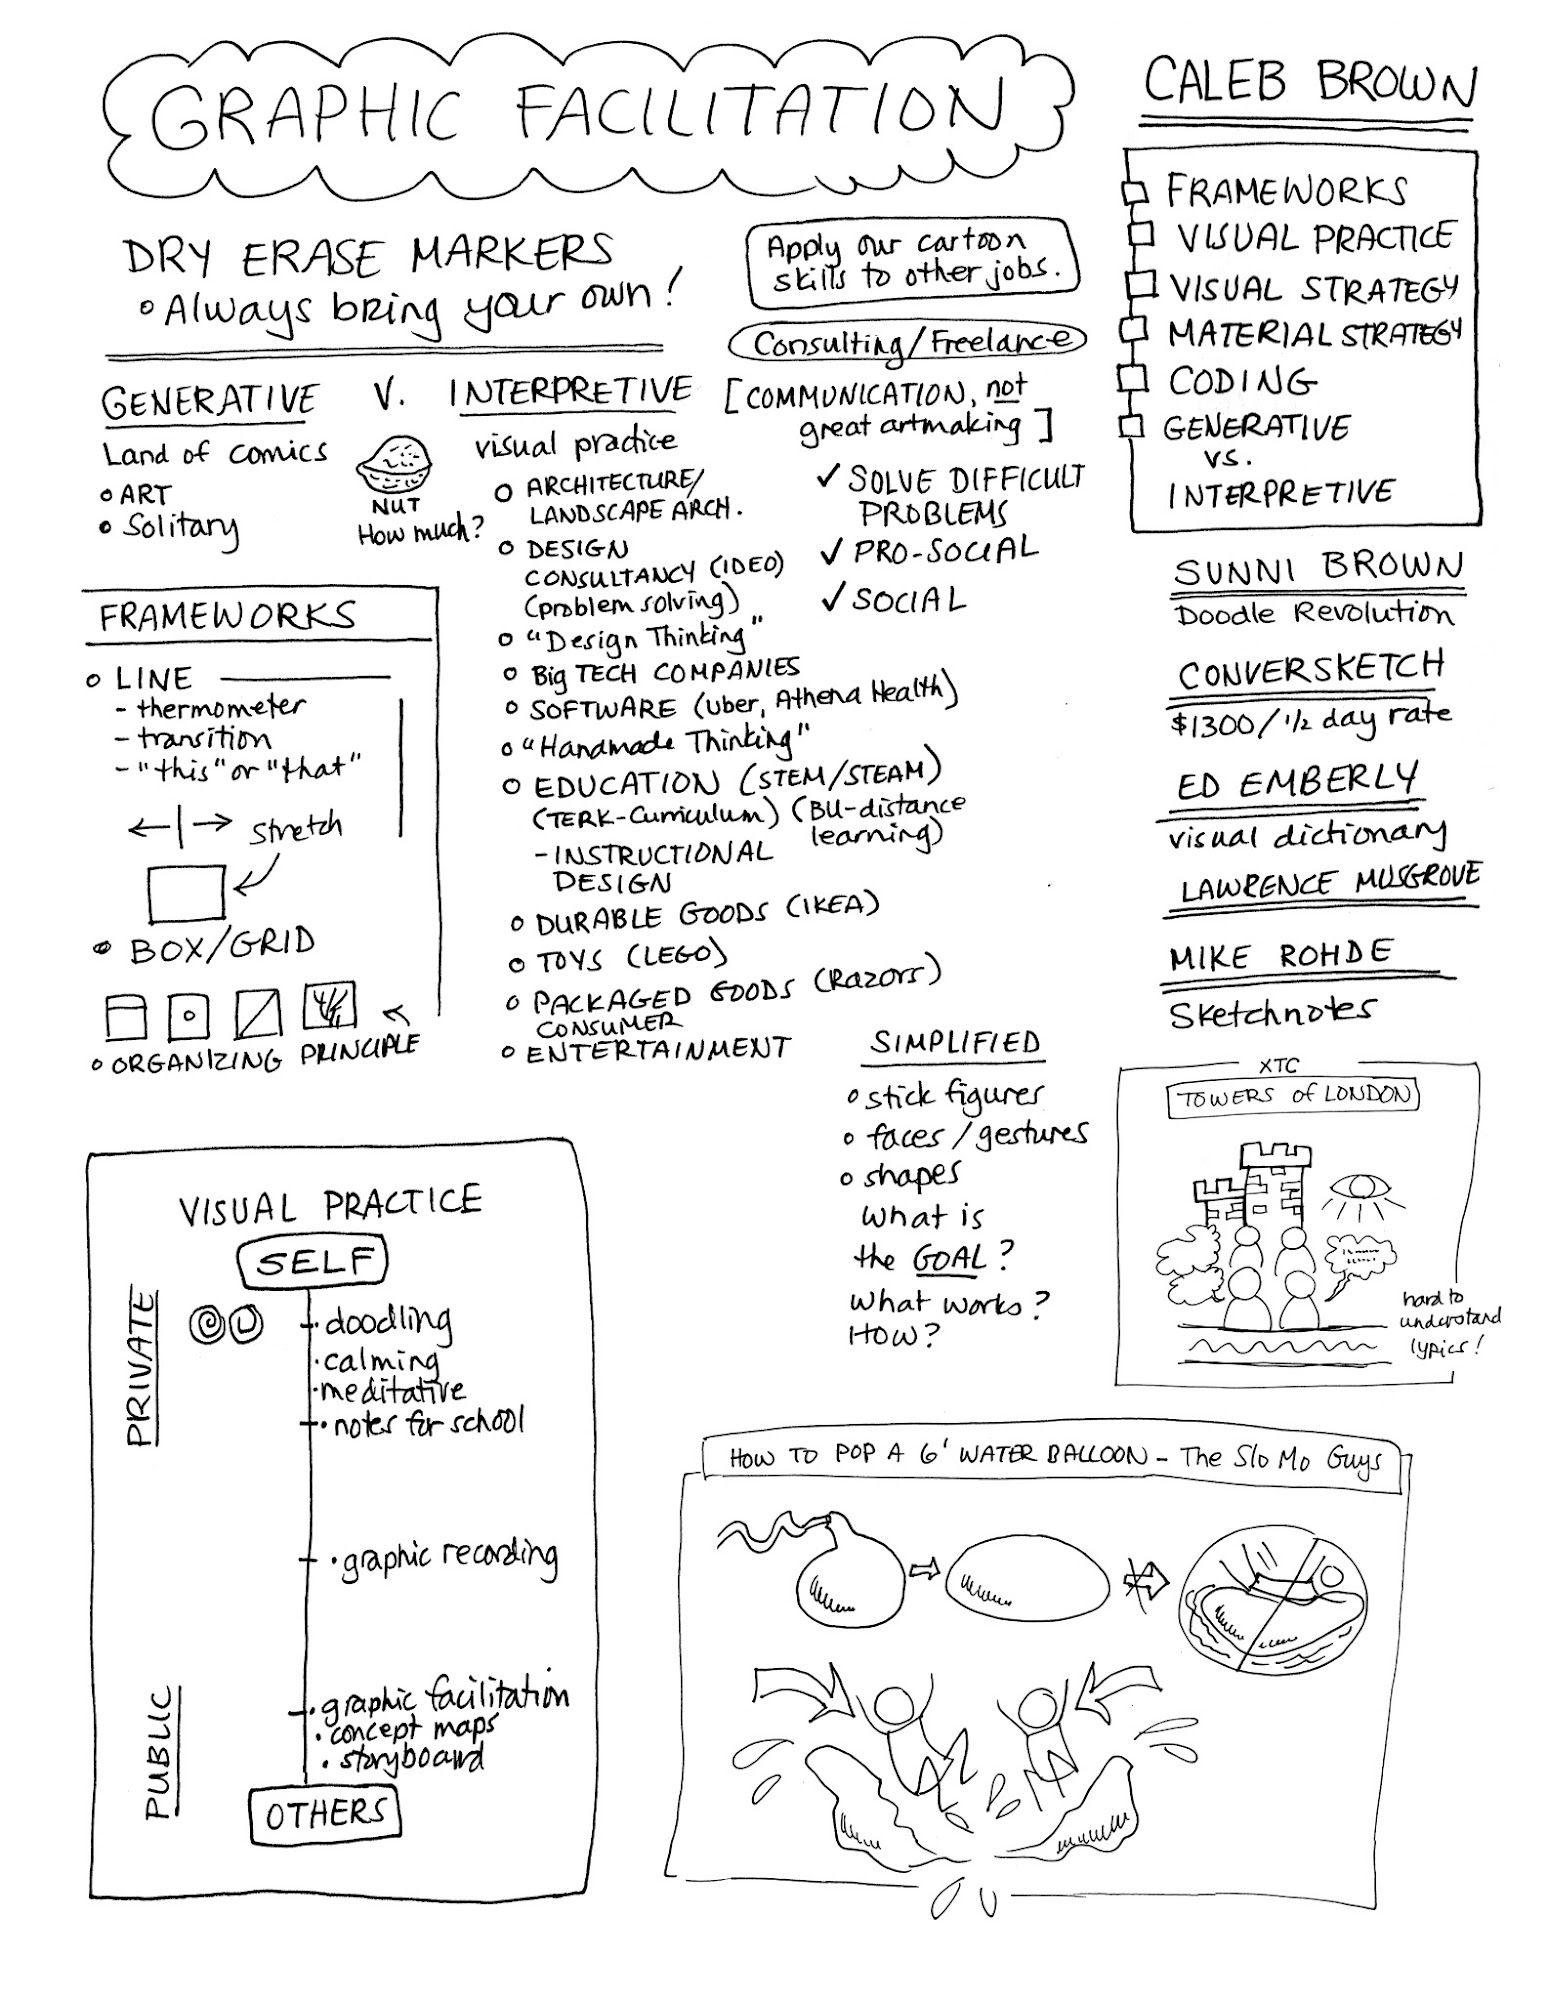 GRAPHIC FACILITATION
DRY ERASE MARKERS
• Always bring your own!
GENERATIVE V. INTERPRETIVE
Land of comics
• ART
• Solitary
NUT
How much?
visual practice
• ARCHITECTURE/
LANDSCAPE ARCH.
• DESIGN
CONSULTANCY (IDEO)
(problem solving)
• "Design Thinking"
• Big TECH COMPANIES
• SOFTWARE (Uber, Athena Health)
• "Handmade Thinking"
• EDUCATION (STEM/STEAM)
(TERK-Curriculum) (BU-distance
learning)
- INSTRUCTIONAL
DESIGN
• DURABLE GOODS (IKEA)
• TOYS (LEGO)
• PACKAGED GOODS (Razors)
CONSUMER
• ENTERTAINMENT
Apply our cartoon
skills to other jobs.
Consulting/Freelance
[COMMUNICATION, not
great artmaking]
✓ SOLVE DIFFICULT
PROBLEMS
✓ PRO-SOCIAL
✓ SOCIAL
FRAMEWORKS
• LINE
- thermometer
- transition
- "this" or "that"
stretch
• BOX/GRID
• ORGANIZING PRINCIPLE
CALEB BROWN
FRAMEWORKS
VISUAL PRACTICE
VISUAL STRATEGY
MATERIAL STRATEGY
CODING
GENERATIVE
vs.
INTERPRETIVE
SUNNI BROWN
Doodle Revolution
CONVERSKETCH
$1300/½ day rate
ED EMBERLY
visual dictionary
LAWRENCE MUSGROVE
MIKE ROHDE
Sketchnotes
SIMPLIFIED
• stick figures
• faces/gestures
• shapes
What is
the GOAL?
What works?
How?
XTC
TOWERS of LONDON
hard to
understand
lyrics!
VISUAL PRACTICE
SELF
PRIVATE
• doodling
• calming
• meditative
• notes for school
• graphic recording
PUBLIC
• graphic facilitation
• concept maps
• storyboard
OTHERS
HOW TO POP A 6' WATER BALLOON - The Slo Mo Guys